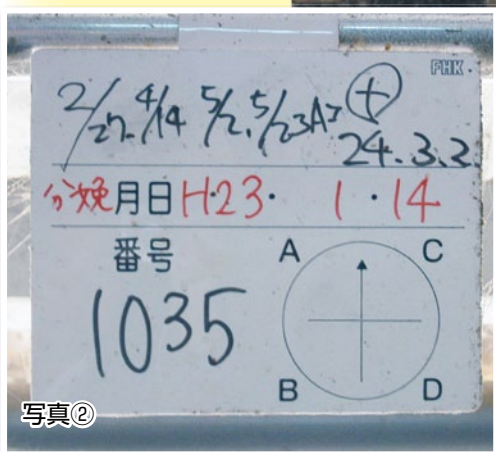 FHK.
2/27. 4/14 5/2. 5/23AI +
24.3.2.
分娩月日 H.23. 1.14
番号
1035
A C
B D
写真②